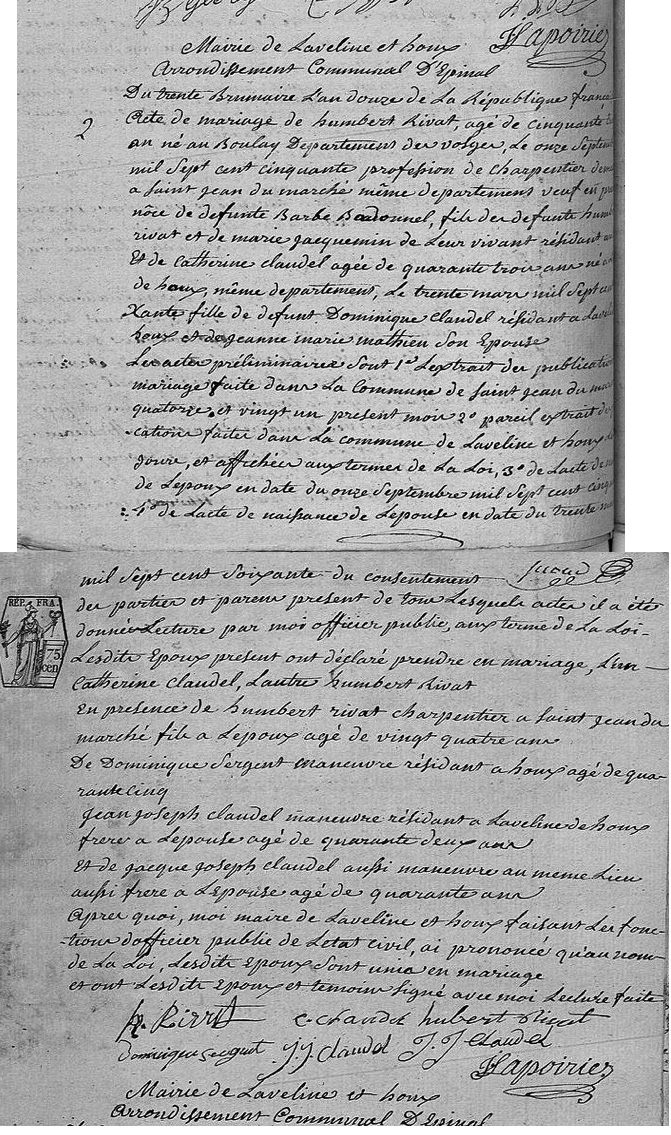 Lapoirie
Mairie de Laveline et houx
Arrondissement Communal D'Epinal
Du trente Brumaire L'an douze de La République franç
2
Acte de mariage de humbert Rivat, agé de cinquante
an né au Boulay Departement des vosges, Le onze Septem
mil Sept cent cinquante profession de charpentier dem
a Saint jean du marché même departement veuf en p
nôce de defunte Barbe Badonnel, fils des defunts hum
rivat et de marie jacquemin de Leur vivant résidant au
Et de Catherine claudel agée de quarante trois ans né a
de houx, même departement, Le trente mars mil Sept ce
Xante fille de defunt Dominique Claudel résidant a Lavel
houx et de jeanne marie mathieu Son Epouse
Les actes préliminaires Sont 1° L'extrait des publicatio
mariage faite dans La Commune de Saint jean du ma
quatorze, et vingt un present mois 2° pareil extrait de
cations faites dans La commune de Laveline et houx
jours, et affichées aux termes de La Loi, 3° de Lacte de
de Lepoux en date du onze Septembre mil Sept cent cinq
4° de Lacte de naissance de Lepouse en date du trente m
mil Sept cent Soixante du consentement
des parties et parens present de tous Lesquels actes il a été
REP. FRA.
75 cen.
donnée Lecture par moi officier public, aux terme de La Loi
Lesdits Epoux present ont déclaré prendre en mariage, L'un
Catherine Claudel, Lautre humbert Rivat
En presence de humbert rivat charpentier a Saint jean du
marché fils a Lepoux agé de vingt quatre ans
De Dominique Sergent maneuvre résidant a houx agé de qua-
rante cinq
jean joseph claudel maneuvre résidant a Laveline de houx
frere a Lepouse agé de quarante deux ans
Et de jacque joseph claudel aussi maneuvre au meme Lieu
aussi frere a LEpouse agé de quarante ans
Apres quoi, moi maire de Laveline et houx faisant Les fonc-
tions d'officier public de Letat civil, ai prononcé qu'au nom
de La Loi, Lesdits Epoux Sont unis en mariage
et ont Lesdits Epoux et temoins Signé avec moi Lecture faite
c. claudel hubert Rivat
Dominique Sergent j j claudel J J claudel
Lapoirie
Mairie de Laveline et houx
Arrondissement Communal D'Epinal